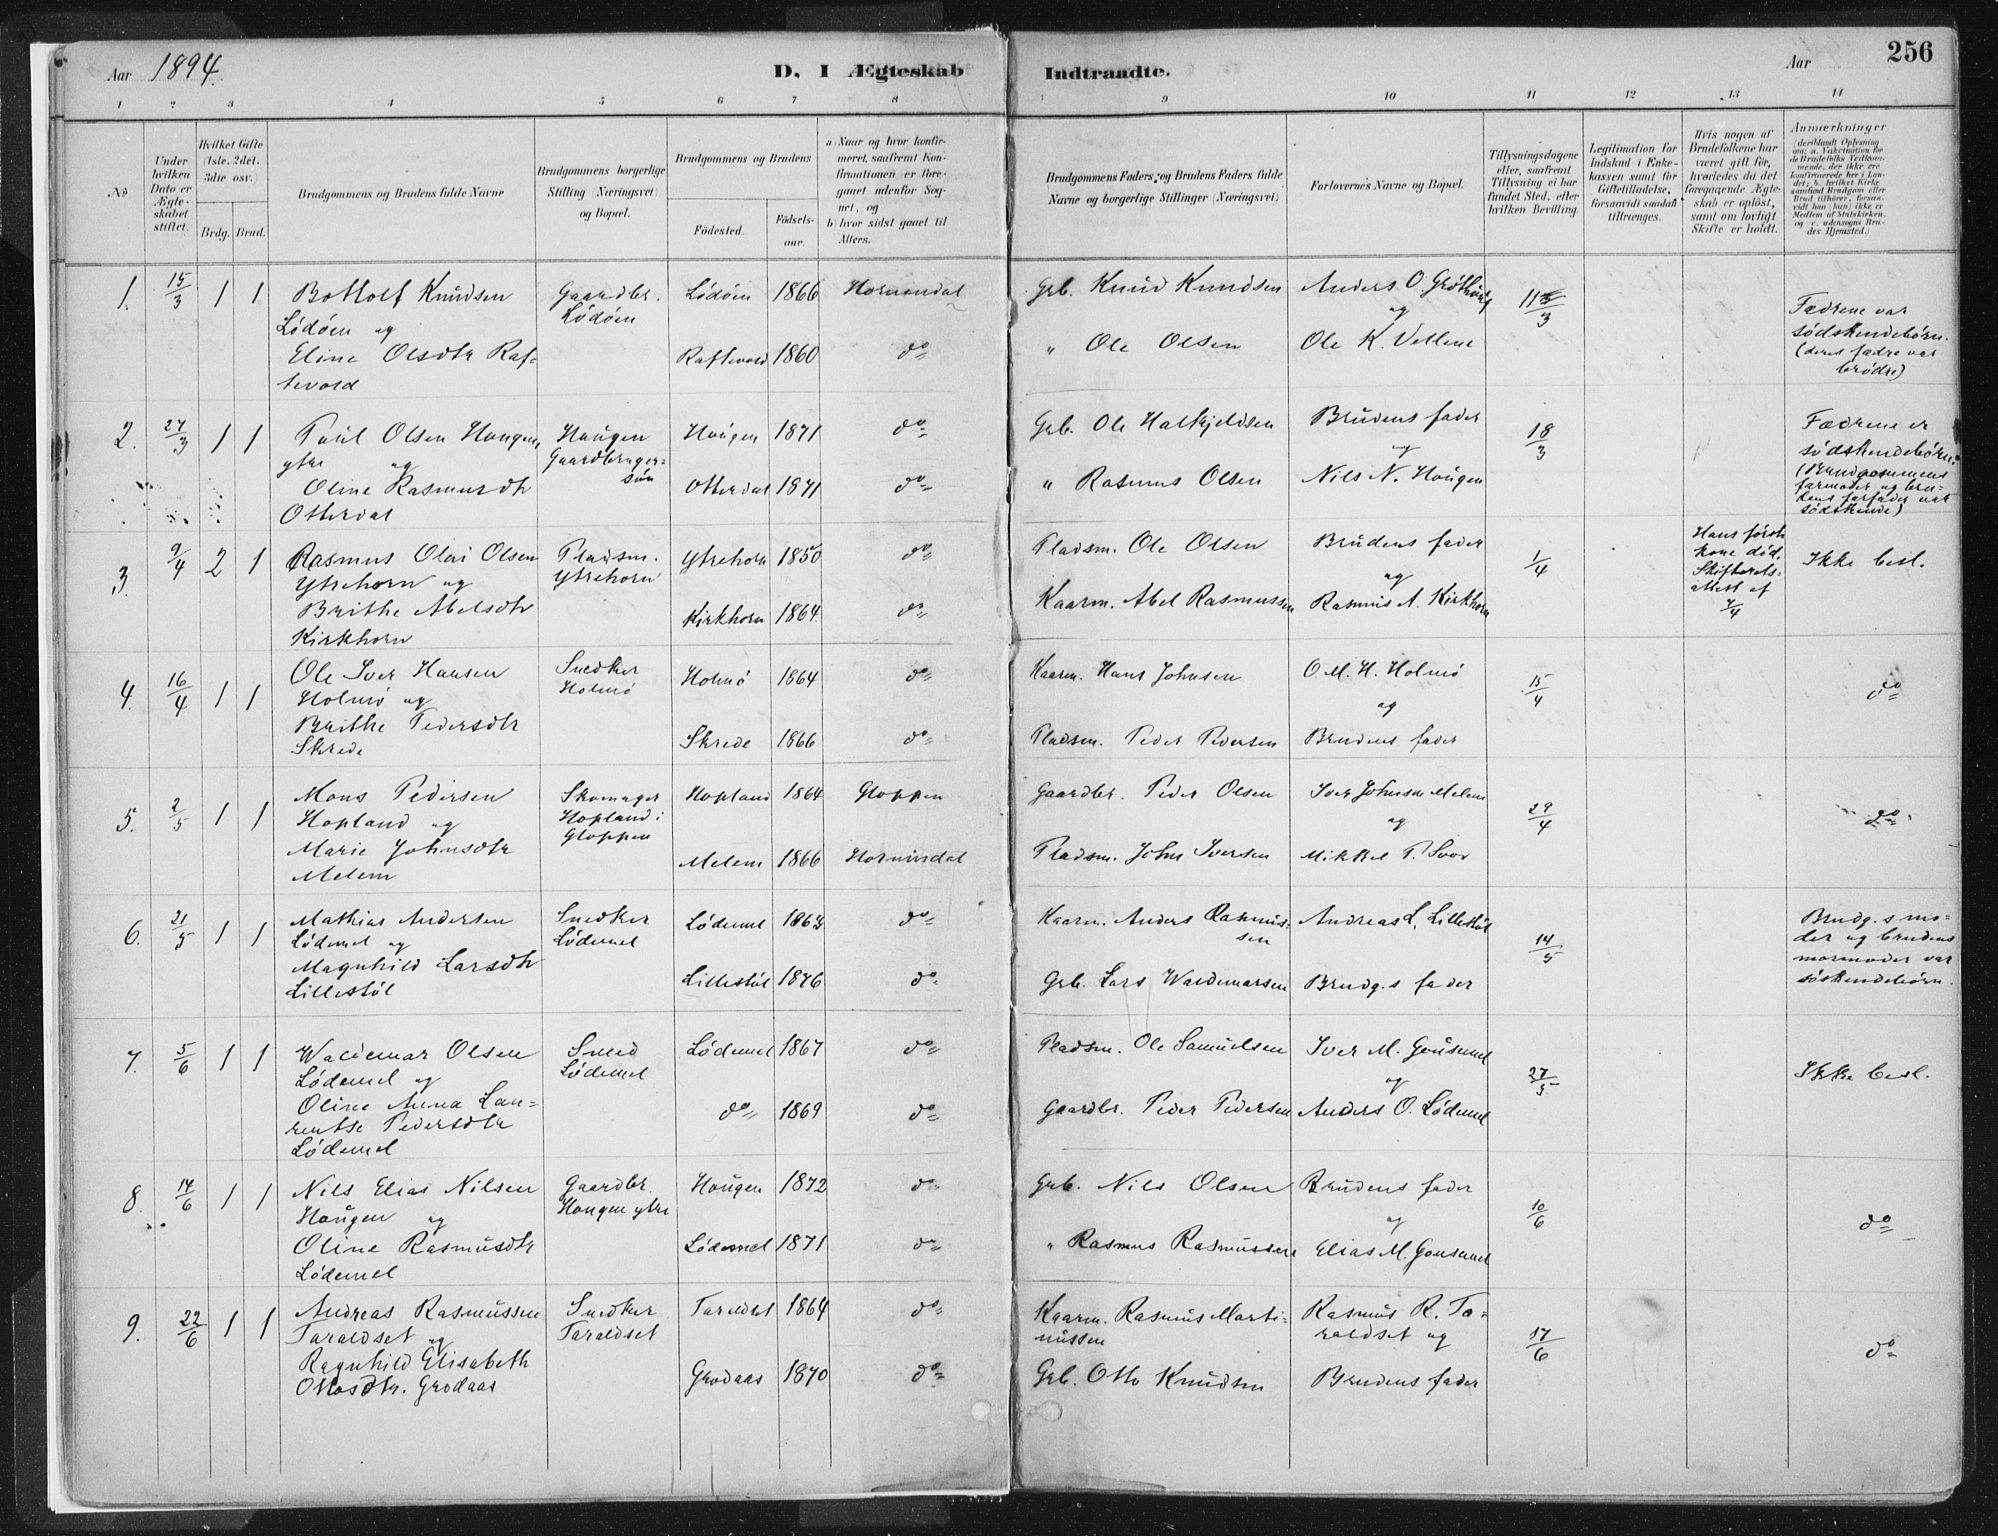 Aar 1894. D. I Ægteskab Indtraadte. Aar 256
1 2 3 4 5 6 7 8 9 10 11 12 13 14
No
Under hvilken Dato er Ægteskabet stiftet.
Hvilket Gifte (1ste, 2det, 3die osv.)
Brdg. Brud.
Brudgommens og Brudens fulde Navne
Brudgommens borgerlige Stilling (Næringsvei) og Bopæl.
Brudgommens og Brudens
Fødested. Fødselsaar.
a) Naar og hvor konfirmeret, saafremt Konfirmationen er foregaaet udenfor Sognet, og
b) hvor sidst gaaet til Alters.
Brudgommens Faders og Brudens Faders fulde Navne og borgerlige Stillinger (Næringsvei)
Forlovernes Navne og Bopæl.
Tillysningsdagene eller, saafremt Tillysning ei har fundet Sted, efter hvilken Bevilling.
Legitimation for Indskud i Enkekassen samt for Giftetilladelse, forsaavidt saadan tiltrænges.
Hvis nogen af Brudefolkene har været gift før, hvorledes da det foregaaende Ægteskab er opløst, samt om lovligt Skifte er holdt.
Anmærkninger
(deriblandt Oplysning om: a. Vakcination for de Brudefolks Vedkommende, der ikke ere konfirmerede her i Landet; b. hvilket Kirkesamfund Brudgom eller Brud tilhører, forsaavidt han (hun) ikke er Medlem af Statskirken, og c. udensogns Brudes Hjemsted.)
1. 15/3 1 1 Bottolf Knudsen Gaardbr. Lødøen 1866 Hornindal Grb. Knud Knudsen Anders O. Grøthaug
Lødøen og Lødøen og Fædrene var
Eline Olsdtr Raf- Raftevold 1860 do " Ole Olsen Ole K. Vellene sødskendebørn.
tevold (deres fædre var
brødre)
2. 27/3 1 1 Paul Olsen Hougen Hougen Hougen 1871 do Grb. Ole Halkjeldsen Brudens fader 18/3 Fædrene er
ytre og Gaardbruger- og sødskendebørn.
Oline Rasmusdtr søn Otterdal 1871 do " Rasmus Olsen Nils N. Hougen (Brudgommens
Otterdal farmoder og bru-
dens farfader var
sødskende)
3. 9/4 2 1 Rasmus Olai Olsen Pladsm. Ytrehorn 1850 do Pladsm. Ole Olsen Brudens fader 1/4 Hans første Ikke besl.
Ytrehorn og Ytrehorn og kone død.
Brithe Abelsdtr Kirkhorn 1864 do Kaarm. Abel Rasmussen Rasmus A. Kirkhorn Skifterets-
Kirkhorn attest af
4. 16/4 1 1 Ole Iver Hansen Snedker Holmø 1864 do Kaarm. Hans Johnsen O. M. H. Holmø 15/4 do
Holmø og Holmø og
Brithe Pedersdtr Skrede 1866 do Pladsm. Peder Pedersen Brudens fader
Skrede
5. 2/5 1 1 Mons Pedersen Skomager Hopland 1864 Gloppen Gaardbr. Peder Olsen Iver Johnsen Melem 29/4 do
Hopland og Hopland i og
Marie Johnsdtr Gloppen Melem 1866 Hornindal Pladsm. John Iversen Mikkel P. Svor
Melem
6. 21/5 1 1 Mathias Andersen Snedker Lødemel 1863 do Kaarm. Anders Rasmus- Andreas L. Lillestøl 14/5 Brudg.s mo-
Lødemel og Lødemel sen der og brudens
Magnhild Larsdtr Lillestøl 1876 do Grb. Lars Waldemarsen Brudg.s fader mormoder var
Lillestøl søskendebørn.
7. 5/6 1 1 Waldemar Olsen Smed Lødemel 1867 do Pladsm. Ole Samuelsen Iver M. Gausemel 27/5 Ikke besl.
Lødemel og Lødemel og
Oline Anna Lau- do 1869 do Gaardbr. Peder Pedersen Anders O. Lødemel
rentse Pedersdtr
Lødemel
8. 14/6 1 1 Nils Elias Nilsen Gaardbr. Hougen 1872 do Grb. Nils Olsen Brudens fader 10/6 do
Hougen og Hougen ytre og
Oline Rasmusdtr Lødemel 1871 do " Rasmus Rasmussen Elias M. Gausemel
Lødemel
9. 22/6 1 1 Andreas Rasmussen Snedker Taraldset 1864 do Kaarm. Rasmus Marti- Rasmus R. Ta- 17/6 do
Taraldset og Taraldset nussen raldset og
Ragnhild Elisabeth Grodaas 1870 do Grb. Otto Knudsen Brudens fader
Ottosdtr. Grodaas